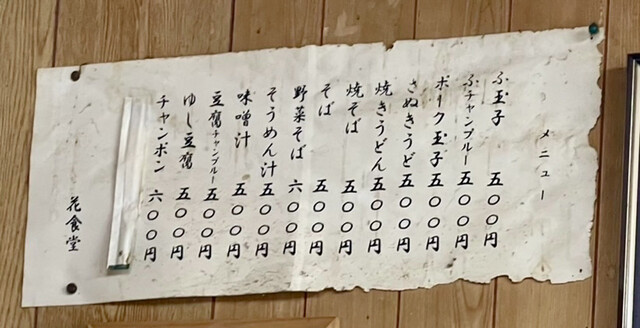 メニュー
ふ玉子 五〇〇円
ふチャンプルー 五〇〇円
ポーク玉子 五〇〇円
さぬきうどん 五〇〇円
焼きうどん 五〇〇円
焼そば 五〇〇円
そば 五〇〇円
野菜そば 六〇〇円
そうめん汁 五〇〇円
味噌汁 五〇〇円
豆腐チャンプルー 五〇〇円
ゆし豆腐 五〇〇円
チャンポン 六〇〇円
花食堂